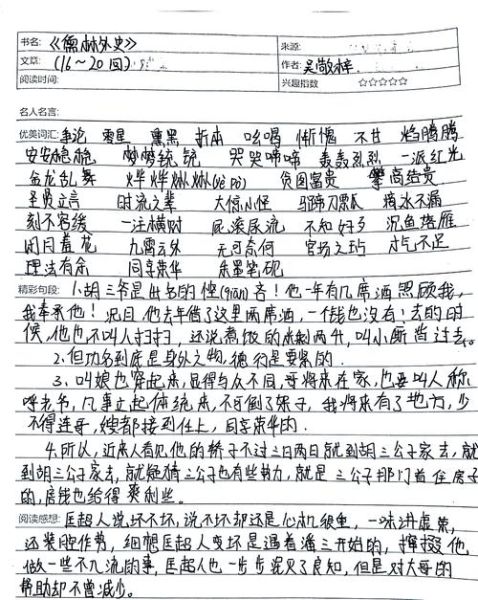 书名:《儒林外史》 来源:
文章:(16~20回) 作者:吴敬梓
阅读时间: 兴趣指数 ☆☆☆☆☆
名人名言:
优美词汇:争论 零星 熏黑 折本 吆喝 惭愧 不甘 焰腾腾
安安稳稳 梦梦铳铳 哭哭啼啼 轰轰烈烈 一派红光
金龙乱舞 烨烨烞烞(yè pò) 贪图富贵 攀高结贵
圣贤立言 时流之辈 大惊小怪 马蹄刀瓢 滴水不漏
刻不容缓 一注横财 屁滚尿流 不知好歹 沉鱼落雁
闭月羞花 九霄云外 无可奈何 官场之玷 才气不足
理法有余 同享荣华 朱墨笔砚
精彩句段:1.胡三爷是出名的悭(qiān)吝!他一年有几席酒照顾我,
我奉承他!况且他去年借了这里两席酒,一钱也没有!去的时
候,他也不叫人扫扫,还说煮饭的米剩两升,叫小厮背过去。
2.但功名到底是身外之物,德行是要紧的.
3.叫娘也穿起来,显得与众不同,哥将来在家,也要叫人称
呼老爷,凡事立起体统来,不可倒了架子,我将来有了地方,少
不得连哥,嫂都接到任上,同享荣华的.
4.所以,近来人看见他的轿子不过三日两日就到胡三公子家去,就
到胡三公子家去,就疑猜三公子也有些势力,就是三公子那门首住房子
的,房钱也给得爽利些。
阅读感想:匡超人说坏不坏,说不坏却还是心机很重,一味讲虚荣,
还装腔作势,细想匡超人变坏是遇着潘三开始的,撺掇他
做一些不入流的事,匡超人也一步步泯灭了良知,但是对大哥的
帮助却不曾减少。